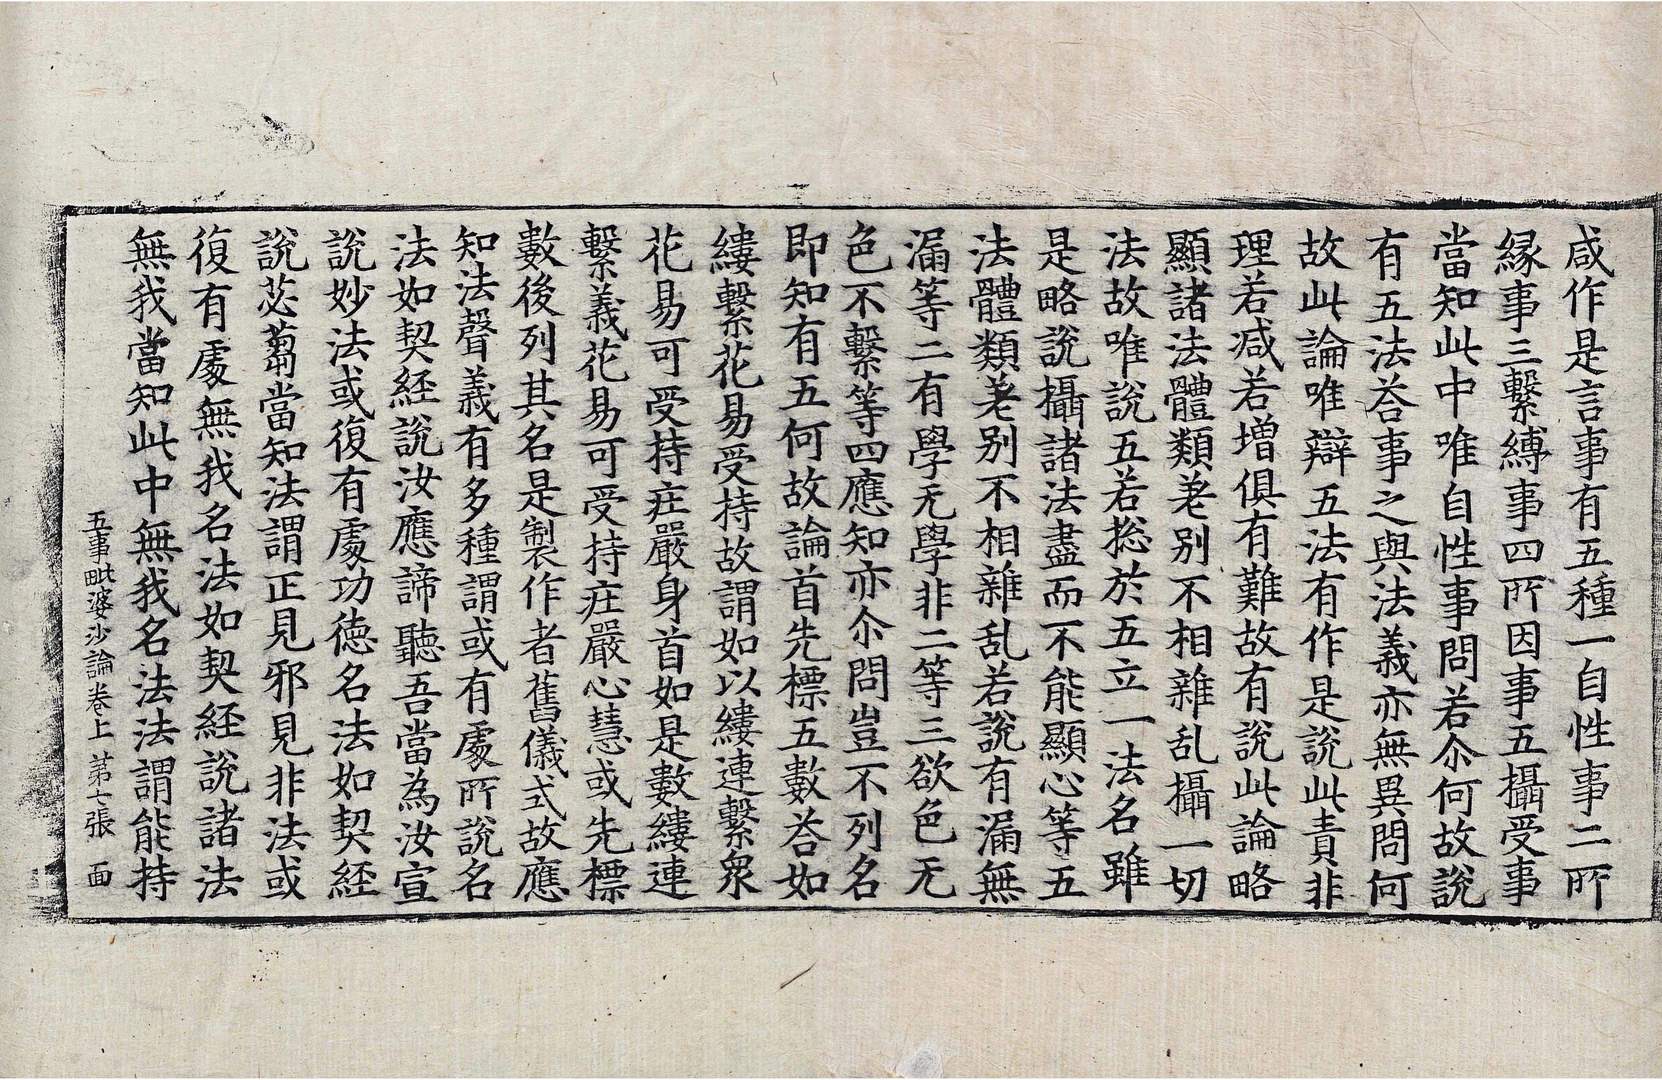 咸作是言事有五種一自性事二所
縁事三繫縛事四所因事五攝受事
當知此中唯自性事問若尒何故說
有五法荅事之與法義亦無異問何
故此論唯辯五法有作是說此責非
理若減若增俱有難故有說此論略
顯諸法體類差别不相雜乱攝一切
法故唯說五若捴於五立一法名雖
是略說攝諸法盡而不能顯心等五
法體類差别不相雜乱若說有漏無
漏等二有學无學非二等三欲色无
色不繫等四應知亦尒問豈不列名
即知有五何故論首先標五數荅如
縷繫花易受持故謂如以縷連繫衆
花易可受持庄嚴身首如是數縷連
繫義花易可受持庄嚴心慧或先標
數後列其名是製作者舊儀式故應
知法聲義有多種謂或有處所說名
法如契經說汝應諦聽吾當為汝宣
說妙法或復有處功徳名法如契經
說苾蒭當知法謂正見邪見非法或
復有處無我名法如契經說諸法
無我當知此中無我名法法謂能持
五事毗婆沙論卷上 第七張 面